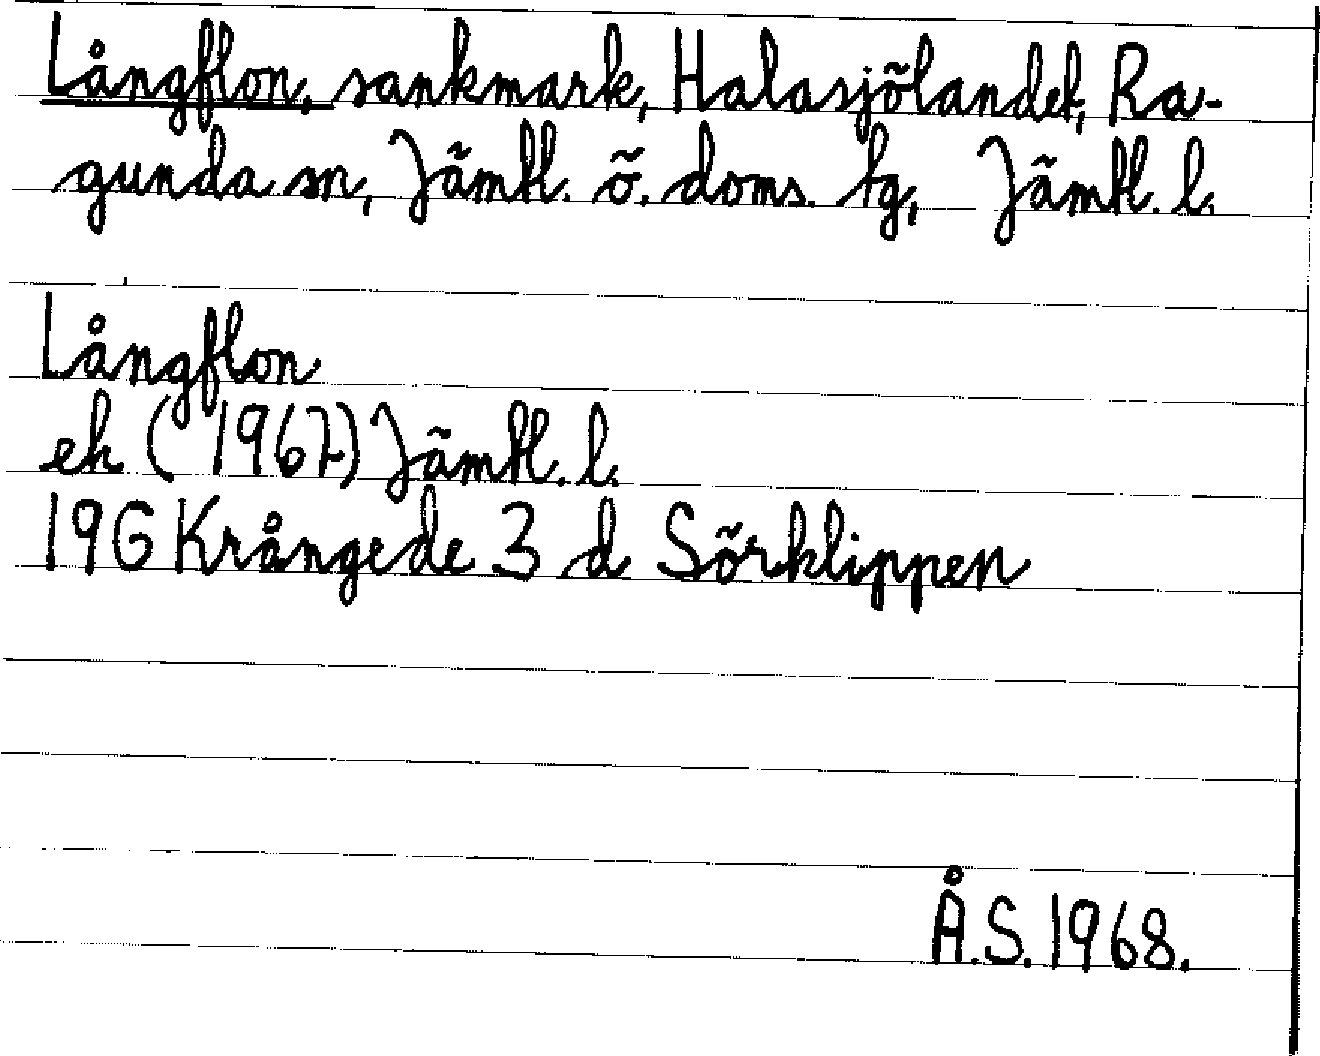 Långflon, sankmark, Halasjölandet, Ra-
gunda sn, Jämtl. ö. doms. tg, Jämtl. l.
Långflon
ek (1967) Jämtl. l.
19G Krångede 3 d Sörklippen
Å.S. 1968.